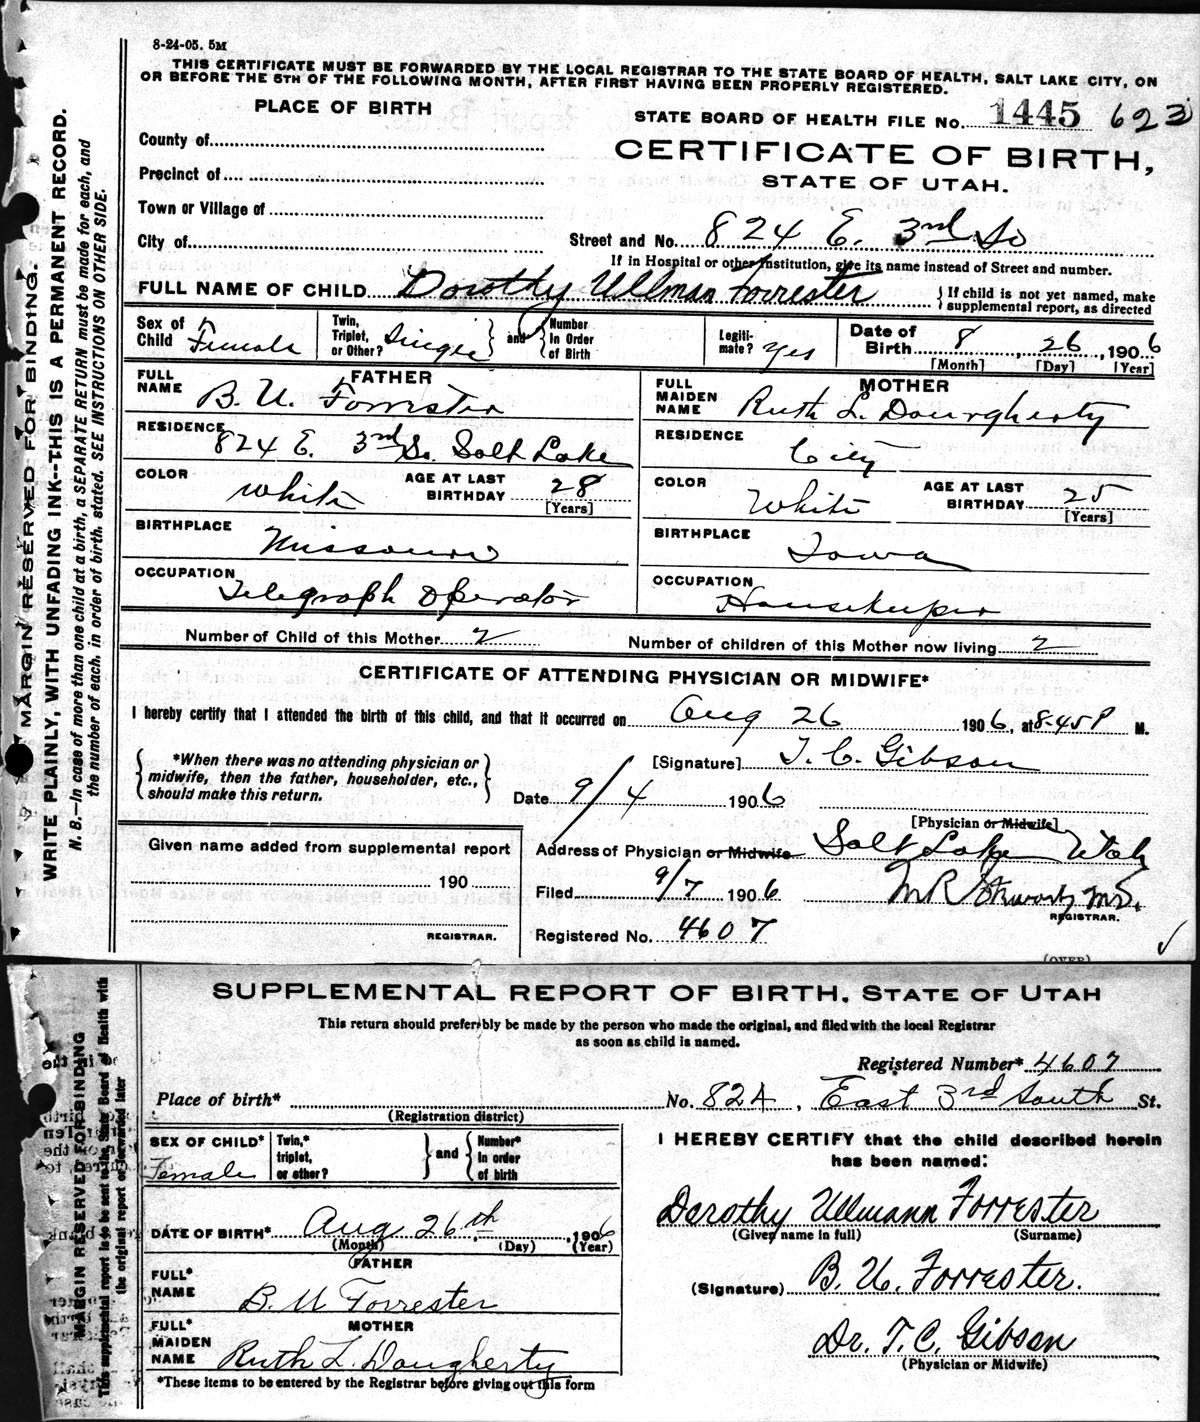 8-24-05. 5M
THIS CERTIFICATE MUST BE FORWARDED BY THE LOCAL REGISTRAR TO THE STATE BOARD OF HEALTH, SALT LAKE CITY, ON
OR BEFORE THE 5TH OF THE FOLLOWING MONTH, AFTER FIRST HAVING BEEN PROPERLY REGISTERED.
MARGIN RESERVED FOR BINDING.
WRITE PLAINLY, WITH UNFADING INK--THIS IS A PERMANENT RECORD.
N. B.—In case of more than one child at a birth, a SEPARATE RETURN must be made for each, and
the number of each, in order of birth, stated. SEE INSTRUCTIONS ON OTHER SIDE.
PLACE OF BIRTH
STATE BOARD OF HEALTH FILE No. 1445 623
County of
CERTIFICATE OF BIRTH,
Precinct of
STATE OF UTAH.
Town or Village of
City of
Street and No. 824 E. 3rd So
If in Hospital or other Institution, give its name instead of Street and number.
FULL NAME OF CHILD Dorothy Ullman Forrester { If child is not yet named, make
supplemental report, as directed
Sex of Child Female
Twin, Triplet, or Other? Single } and { Number In Order of Birth
Legitimate? Yes
Date of Birth 8, 26, 1906
[Month] [Day] [Year]
FATHER
FULL NAME B. U. Forrester
RESIDENCE 824 E. 3rd So. Salt Lake
COLOR White
AGE AT LAST BIRTHDAY 28
[Years]
BIRTHPLACE Missouri
OCCUPATION Telegraph Operator
MOTHER
FULL MAIDEN NAME Ruth L. Dougherty
RESIDENCE City
COLOR White
AGE AT LAST BIRTHDAY 25
[Years]
BIRTHPLACE Iowa
OCCUPATION Housekeeper
Number of Child of this Mother 2 Number of children of this Mother now living 2
CERTIFICATE OF ATTENDING PHYSICIAN OR MIDWIFE*
I hereby certify that I attended the birth of this child, and that it occurred on Aug 26 1906, at 8-45 P M.
{ *When there was no attending physician or
midwife, then the father, householder, etc.,
should make this return. }
[Signature] T. C. Gibson
Date 9/4 1906
[Physician or Midwife]
Given name added from supplemental report
190
REGISTRAR.
Address of Physician or Midwife Salt Lake Utah
Filed 9/7 1906 M R M.D.
REGISTRAR.
Registered No. 4607
(OVER)
SUPPLEMENTAL REPORT OF BIRTH, STATE OF UTAH
This return should preferably be made by the person who made the original, and filed with the local Registrar
as soon as child is named.
MARGIN RESERVED FOR BINDING
This supplemental report is to be sent to the State Board of Health with
the original report or forwarded later
Registered Number* 4607
Place of birth* No. 824, East 3rd South St.
(Registration district)
SEX OF CHILD* Female
Twin,* triplet, or other? } and { Number* In order of birth
DATE OF BIRTH* Aug 26th, 1906
(Month) (Day) (Year)
FATHER
FULL* NAME B. U Forrester
MOTHER
FULL* MAIDEN NAME Ruth L. Dougherty
*These items to be entered by the Registrar before giving out this form
I HEREBY CERTIFY that the child described herein
has been named:
Dorothy Ullmann Forrester
(Given name in full) (Surname)
(Signature) B. U. Forrester.
Dr. T. C. Gibson
(Physician or Midwife)